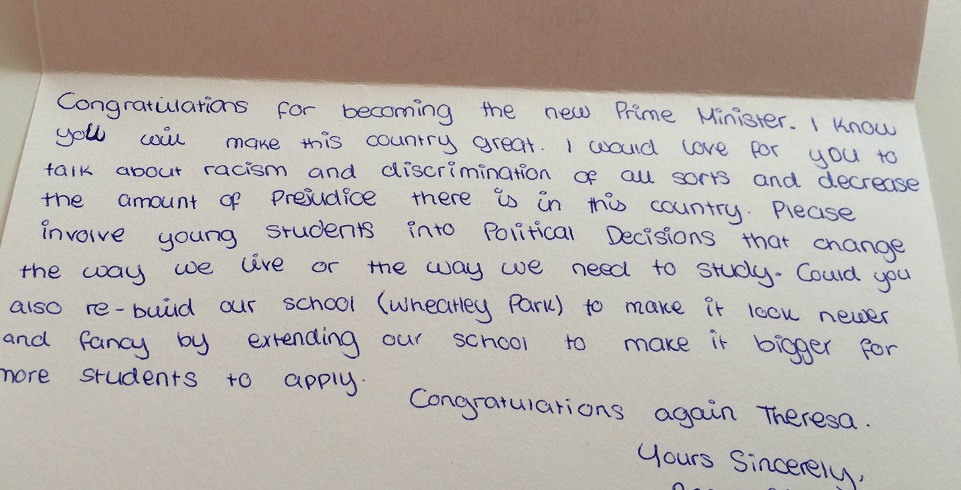 Congratulations for becoming the new Prime Minister. I know
you will make this country great. I would love for you to
talk about racism and discrimination of all sorts and decrease
the amount of Prejudice there is in this country. Please
involve young students into Political Decisions that change
the way we live or the way we need to study. Could you
also re-build our school (Wheatley Park) to make it look newer
and fancy by extending our school to make it bigger for
more students to apply.
Congratulations again Theresa.
Yours Sincerely,